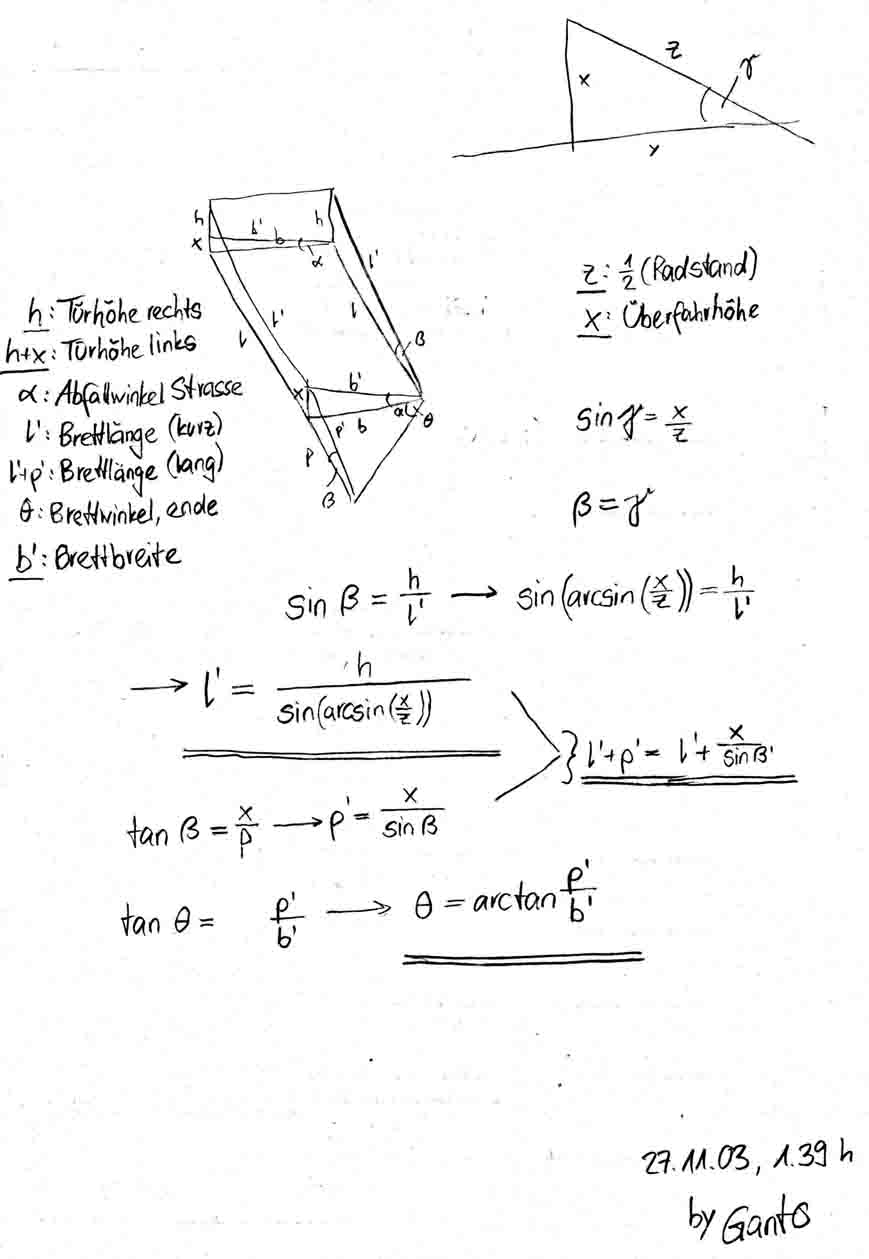 z
x
γ
y
h
b'
h
x
b
α
l'
l'
l
l
β
x
b'
α
θ
p'
b
p
β
h: Türhöhe rechts
h+x: Türhöhe links
α: Abfallwinkel Strasse
l': Brettlänge (kurz)
l'+p': Brettlänge (lang)
θ: Brettwinkel, ende
b': Brettbreite
z: 1/2 (Radstand)
x: Überfahrhöhe
sin γ = x/z
β = γ
sin β = h/l' → sin(arcsin(x/z)) = h/l'
→ l' = h/sin(arcsin(x/z))
} l'+p' = l' + x/sin β'
tan β = x/p → p' = x/sin β
tan θ = p'/b' → θ = arctan p'/b'
27.11.03, 1.39 h
by Ganto